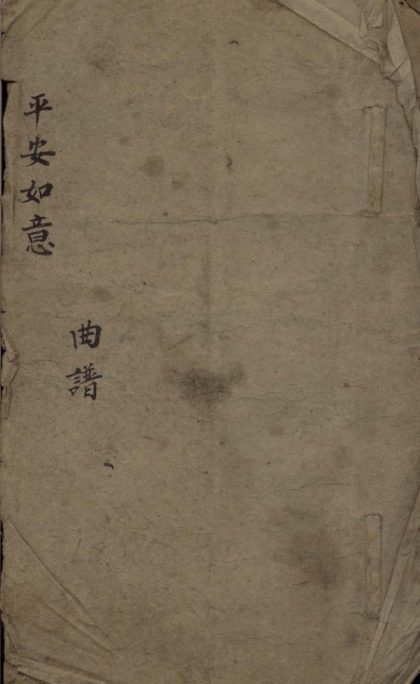 平安如意
曲譜